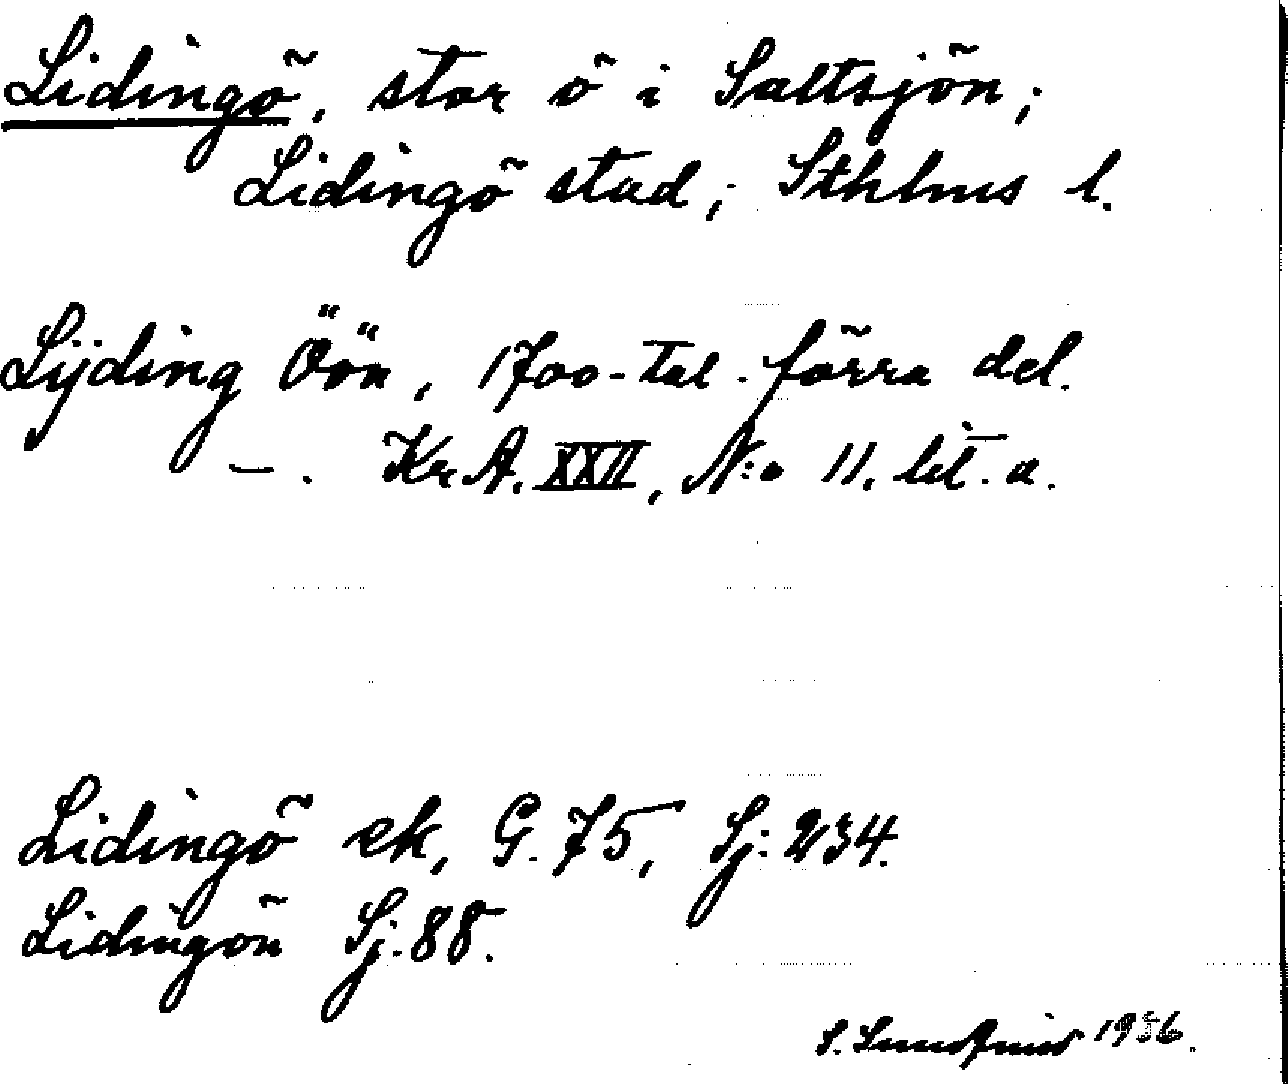 Lidingö, stor ö i Saltsjön;
Lidingö stad; Sthlms l.
Lijding Öön, 1700-tal. förra del.
—. Kr. A. XXII, N:o 11. lit. a.
Lidingö ek, G. 75, Sj: 234.
Lidingön Sj. 88.
S. 1936.